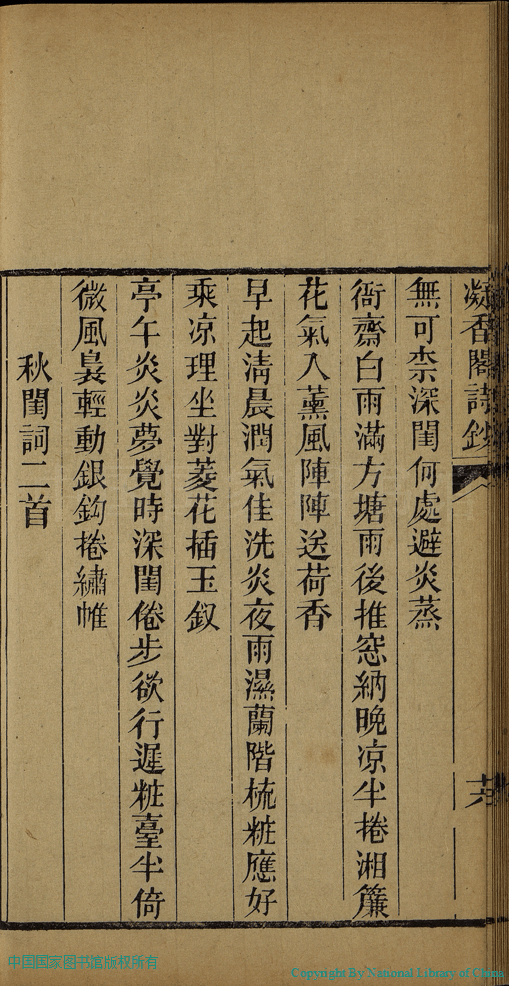 凝香閣詩鈔
無可柰深閨何處避炎蒸
衙齋白雨滿方塘雨後推窓納晚凉半捲湘簾
花氣入薰風陣陣送荷香
早起淸晨潤氣佳洗炎夜雨濕蘭階梳粧應好
乘凉理坐對菱花揷玉釵
亭午炎炎夢覺時深閨倦步欲行遲粧臺半倚
微風裊輕動銀鈎捲繡帷
秋閨詞二首
中国国家图书馆版权所有
Copyright By National Library of China